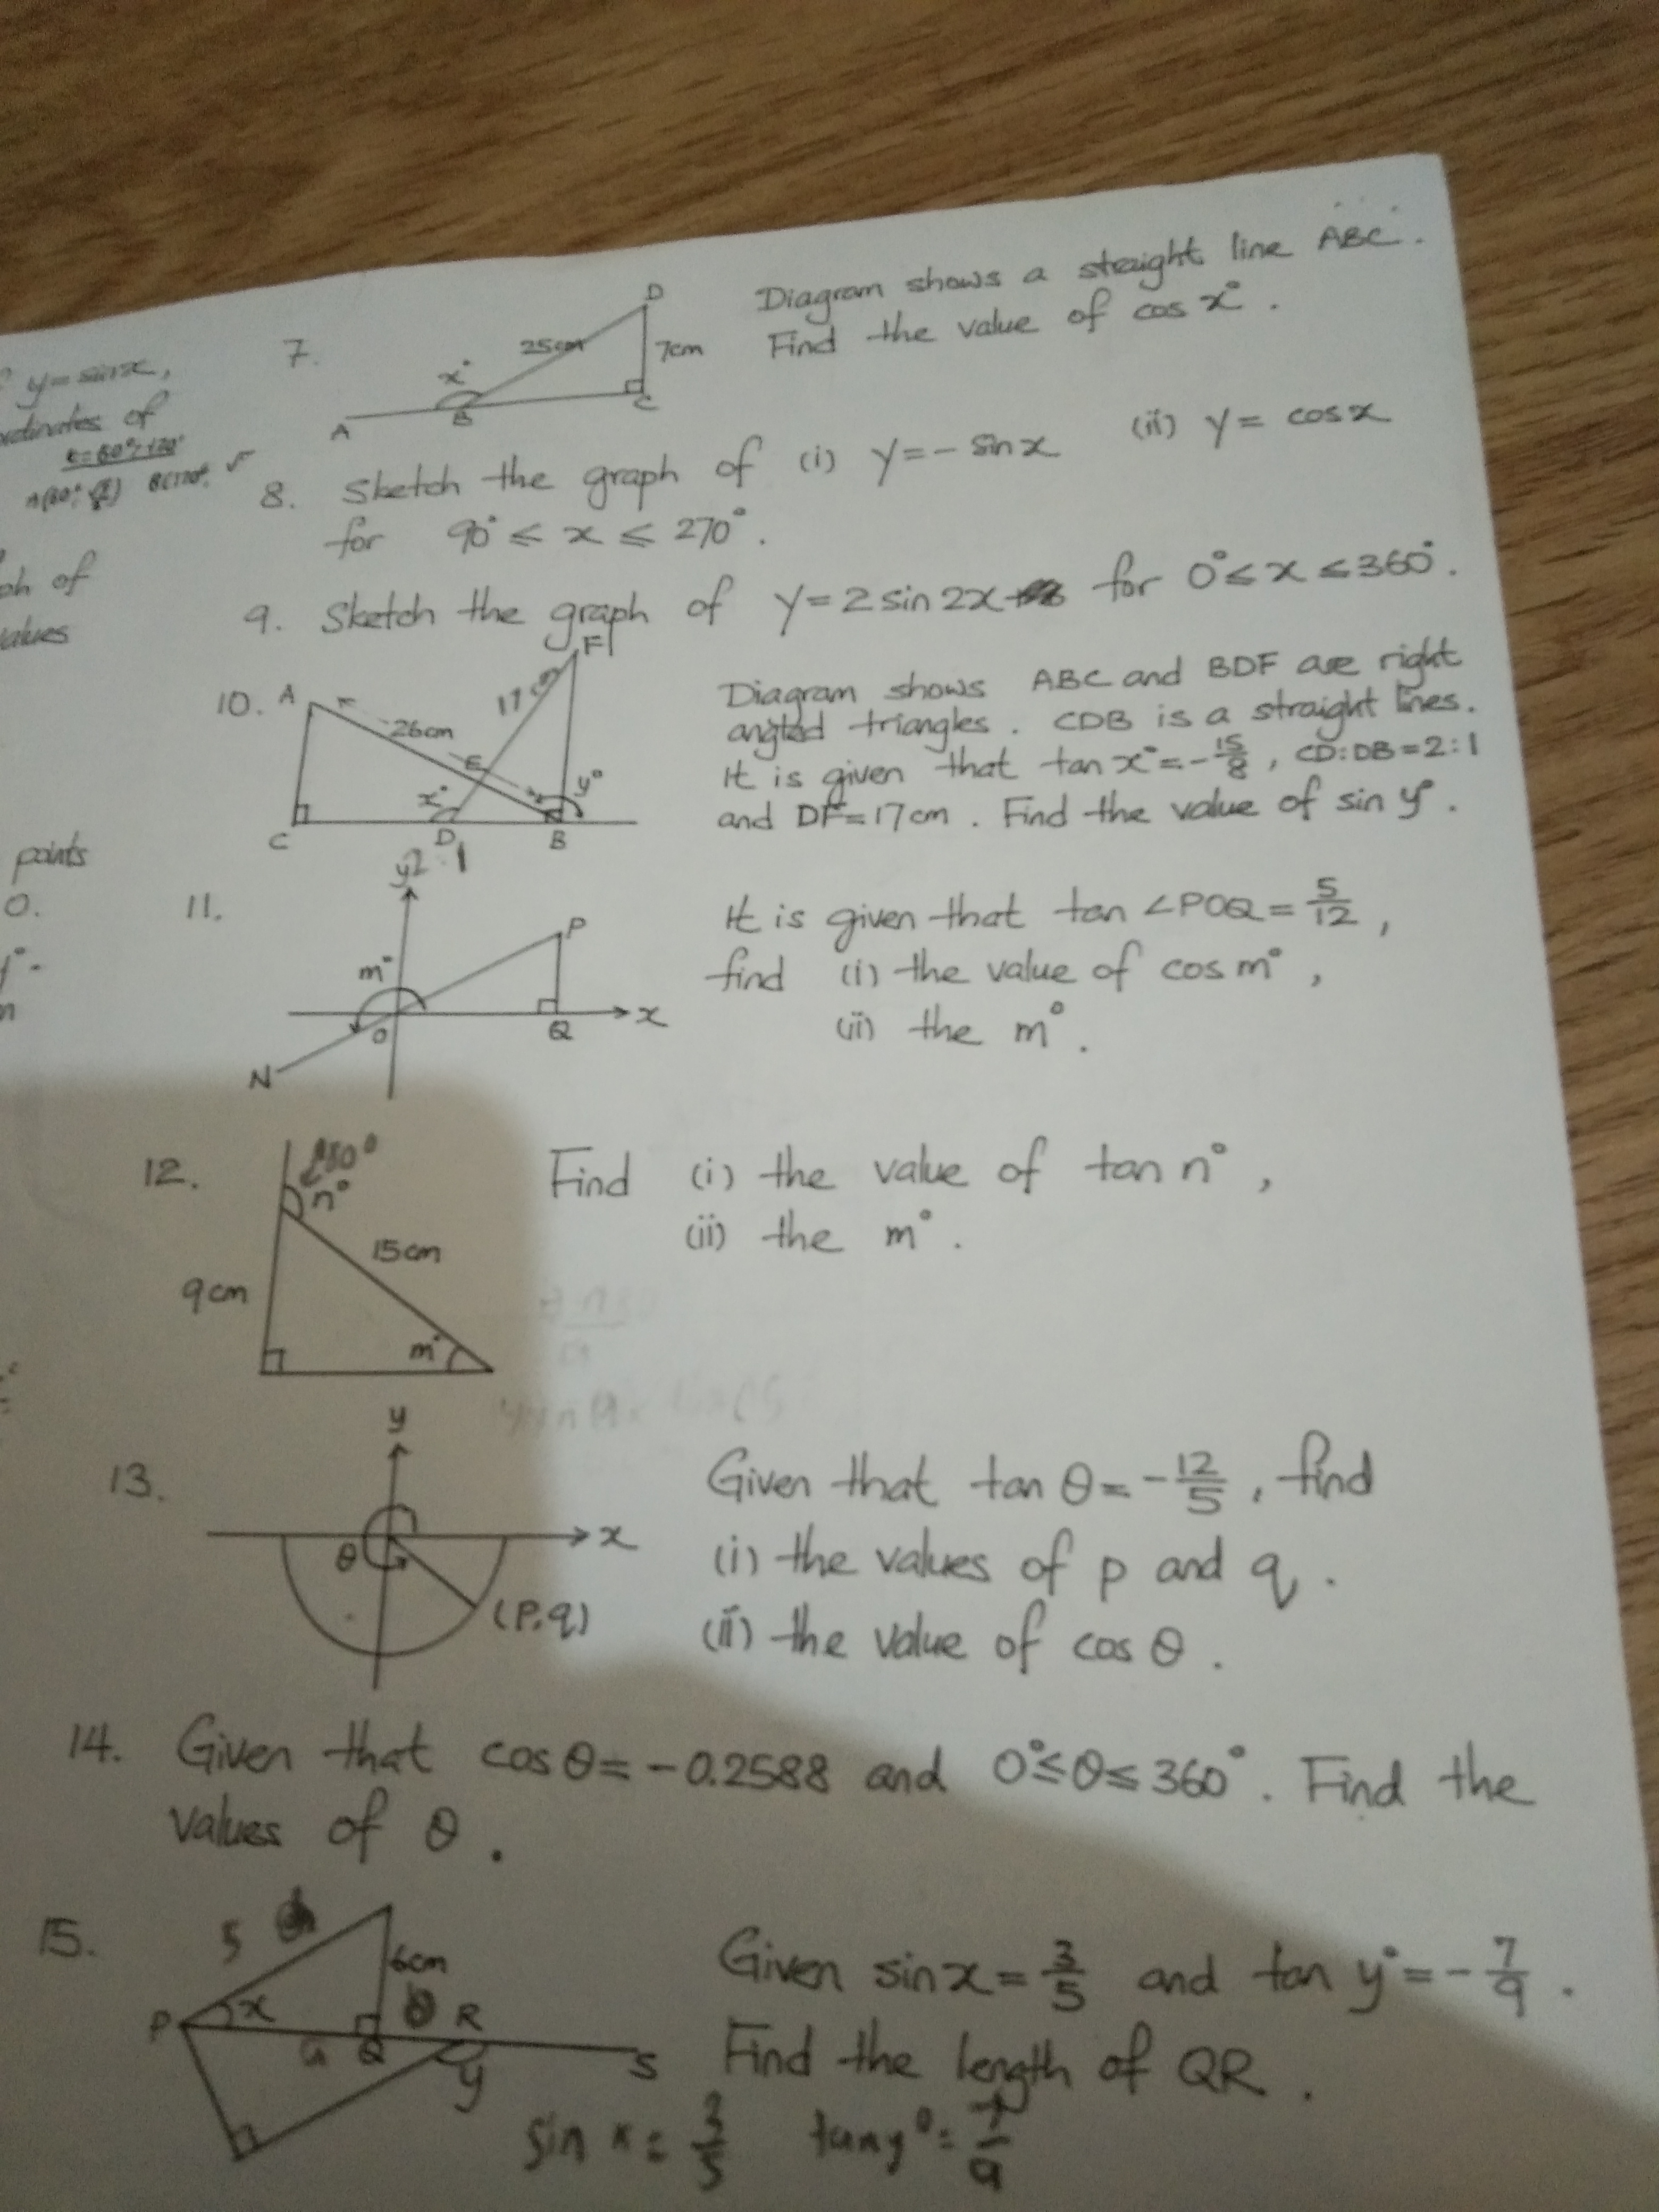 y=sinx,
ordinates of
ph of
values
points
0.
7.
D
25cm
7cm
x°
A
B
C
Diagram shows a straight line ABC.
Find the value of cos x°.
8. Sketch the graph of (i) y=-sinx (ii) y= cosx
for 90° ≤ x ≤ 270°.
9. Sketch the graph of y=2sin2x for 0°≤x≤360°.
10.
A
F
17cm
26cm
E
y°
x°
C
D
B
2:1
Diagram shows ABC and BDF are right
angled triangles. CDB is a straight lines.
It is given that tan x°=-15/8, CD:DB=2:1
and DF=17cm. Find the value of sin y°.
11.
y
P
m°
x
O
Q
N
It is given that tan ∠POQ=5/12,
find (i) the value of cos m°,
(ii) the m°.
12.
180°
n°
15cm
9cm
m°
Find (i) the value of tan n°,
(ii) the m°.
13.
y
x
θ
(p,q)
Given that tan θ=-12/5, find
(i) the values of p and q.
(ii) the value of cos θ.
14. Given that cosθ=-0.2588 and 0°≤θ≤360°. Find the
values of θ.
15.
5
6cm
P
x
R
Q
y
S
Given sinx=3/5 and tan y°=-7/9.
Find the length of QR.
sin x = 3/5 tan y°= 7/9